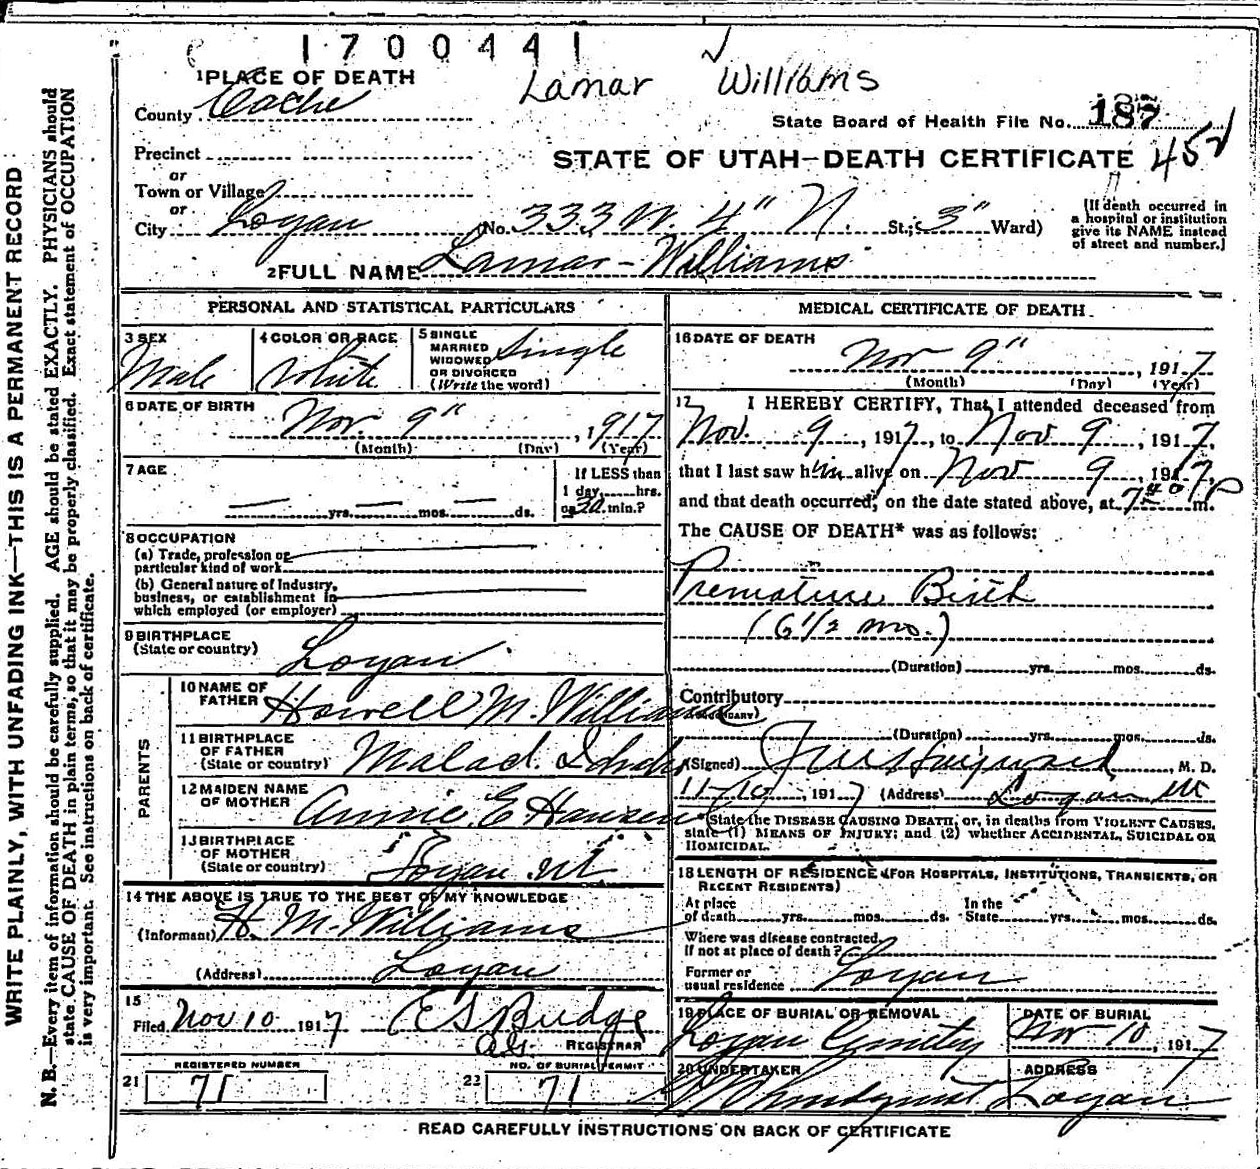 1700441
Lamar Williams
1 PLACE OF DEATH
County Cache
State Board of Health File No. 187
Precinct
STATE OF UTAH—DEATH CERTIFICATE 452
or
Town or Village
or
City Logan (No. 333 W. 4" N. St.; 3" Ward)
(If death occurred in
a hospital or institution
give its NAME instead
of street and number.)
2 FULL NAME Lamar Williams
PERSONAL AND STATISTICAL PARTICULARS
3 SEX
Male
4 COLOR OR RACE
White
5 SINGLE
MARRIED
WIDOWED
OR DIVORCED
(Write the word)
Single
6 DATE OF BIRTH
Nov. 9", 1917
(Month) (Day) (Year)
7 AGE
— yrs. — mos. — ds.
If LESS than
1 day, hrs.
or 30 min.?
8 OCCUPATION
(a) Trade, profession or
particular kind of work
(b) General nature of Industry,
business, or establishment in
which employed (or employer)
9 BIRTHPLACE
(State or country)
Logan
PARENTS
10 NAME OF
FATHER
Howell M. Williams
11 BIRTHPLACE
OF FATHER
(State or country)
Malad. Idaho
12 MAIDEN NAME
OF MOTHER
Annie E Hansen
13 BIRTHPLACE
OF MOTHER
(State or country)
Logan Ut
14 THE ABOVE IS TRUE TO THE BEST OF MY KNOWLEDGE
(Informant) H. M. Williams
(Address) Logan
15
Filed Nov 10 1917 E S Budge
REGISTRAR
REGISTERED NUMBER
21 71
NO. OF BURIAL PERMIT
22 71
MEDICAL CERTIFICATE OF DEATH
16 DATE OF DEATH
Nov 9", 1917
(Month) (Day) (Year)
17 I HEREBY CERTIFY, That I attended deceased from
Nov. 9, 1917, to Nov 9, 1917,
that I last saw him alive on Nov 9, 1917,
and that death occurred, on the date stated above, at 7 40 P m.
The CAUSE OF DEATH* was as follows:
Premature Birth
(6 1/2 mo.)
(Duration) yrs. mos. ds.
Contributory
(SECONDARY)
(Duration) yrs. mos. ds.
(Signed) M. D.
11-10, 1917 (Address) Logan Ut
*State the DISEASE CAUSING DEATH, or, in deaths from VIOLENT CAUSES,
state (1) MEANS OF INJURY; and (2) whether ACCIDENTAL, SUICIDAL OR
HOMICIDAL.
18 LENGTH OF RESIDENCE (FOR HOSPITALS, INSTITUTIONS, TRANSIENTS, OR
RECENT RESIDENTS)
At place
of death yrs. mos. ds.
In the
State yrs. mos. ds.
Where was disease contracted,
If not at place of death?
Former or
usual residence Logan
19 PLACE OF BURIAL OR REMOVAL
Logan Cemetery
DATE OF BURIAL
Nov 10, 1917
20 UNDERTAKER
ADDRESS
Logan
READ CAREFULLY INSTRUCTIONS ON BACK OF CERTIFICATE
WRITE PLAINLY, WITH UNFADING INK—THIS IS A PERMANENT RECORD
N. B.—Every item of information should be carefully supplied. AGE should be stated EXACTLY. PHYSICIANS should
state CAUSE OF DEATH in plain terms, so that it may be properly classified. Exact statement of OCCUPATION
is very important. See instructions on back of certificate.